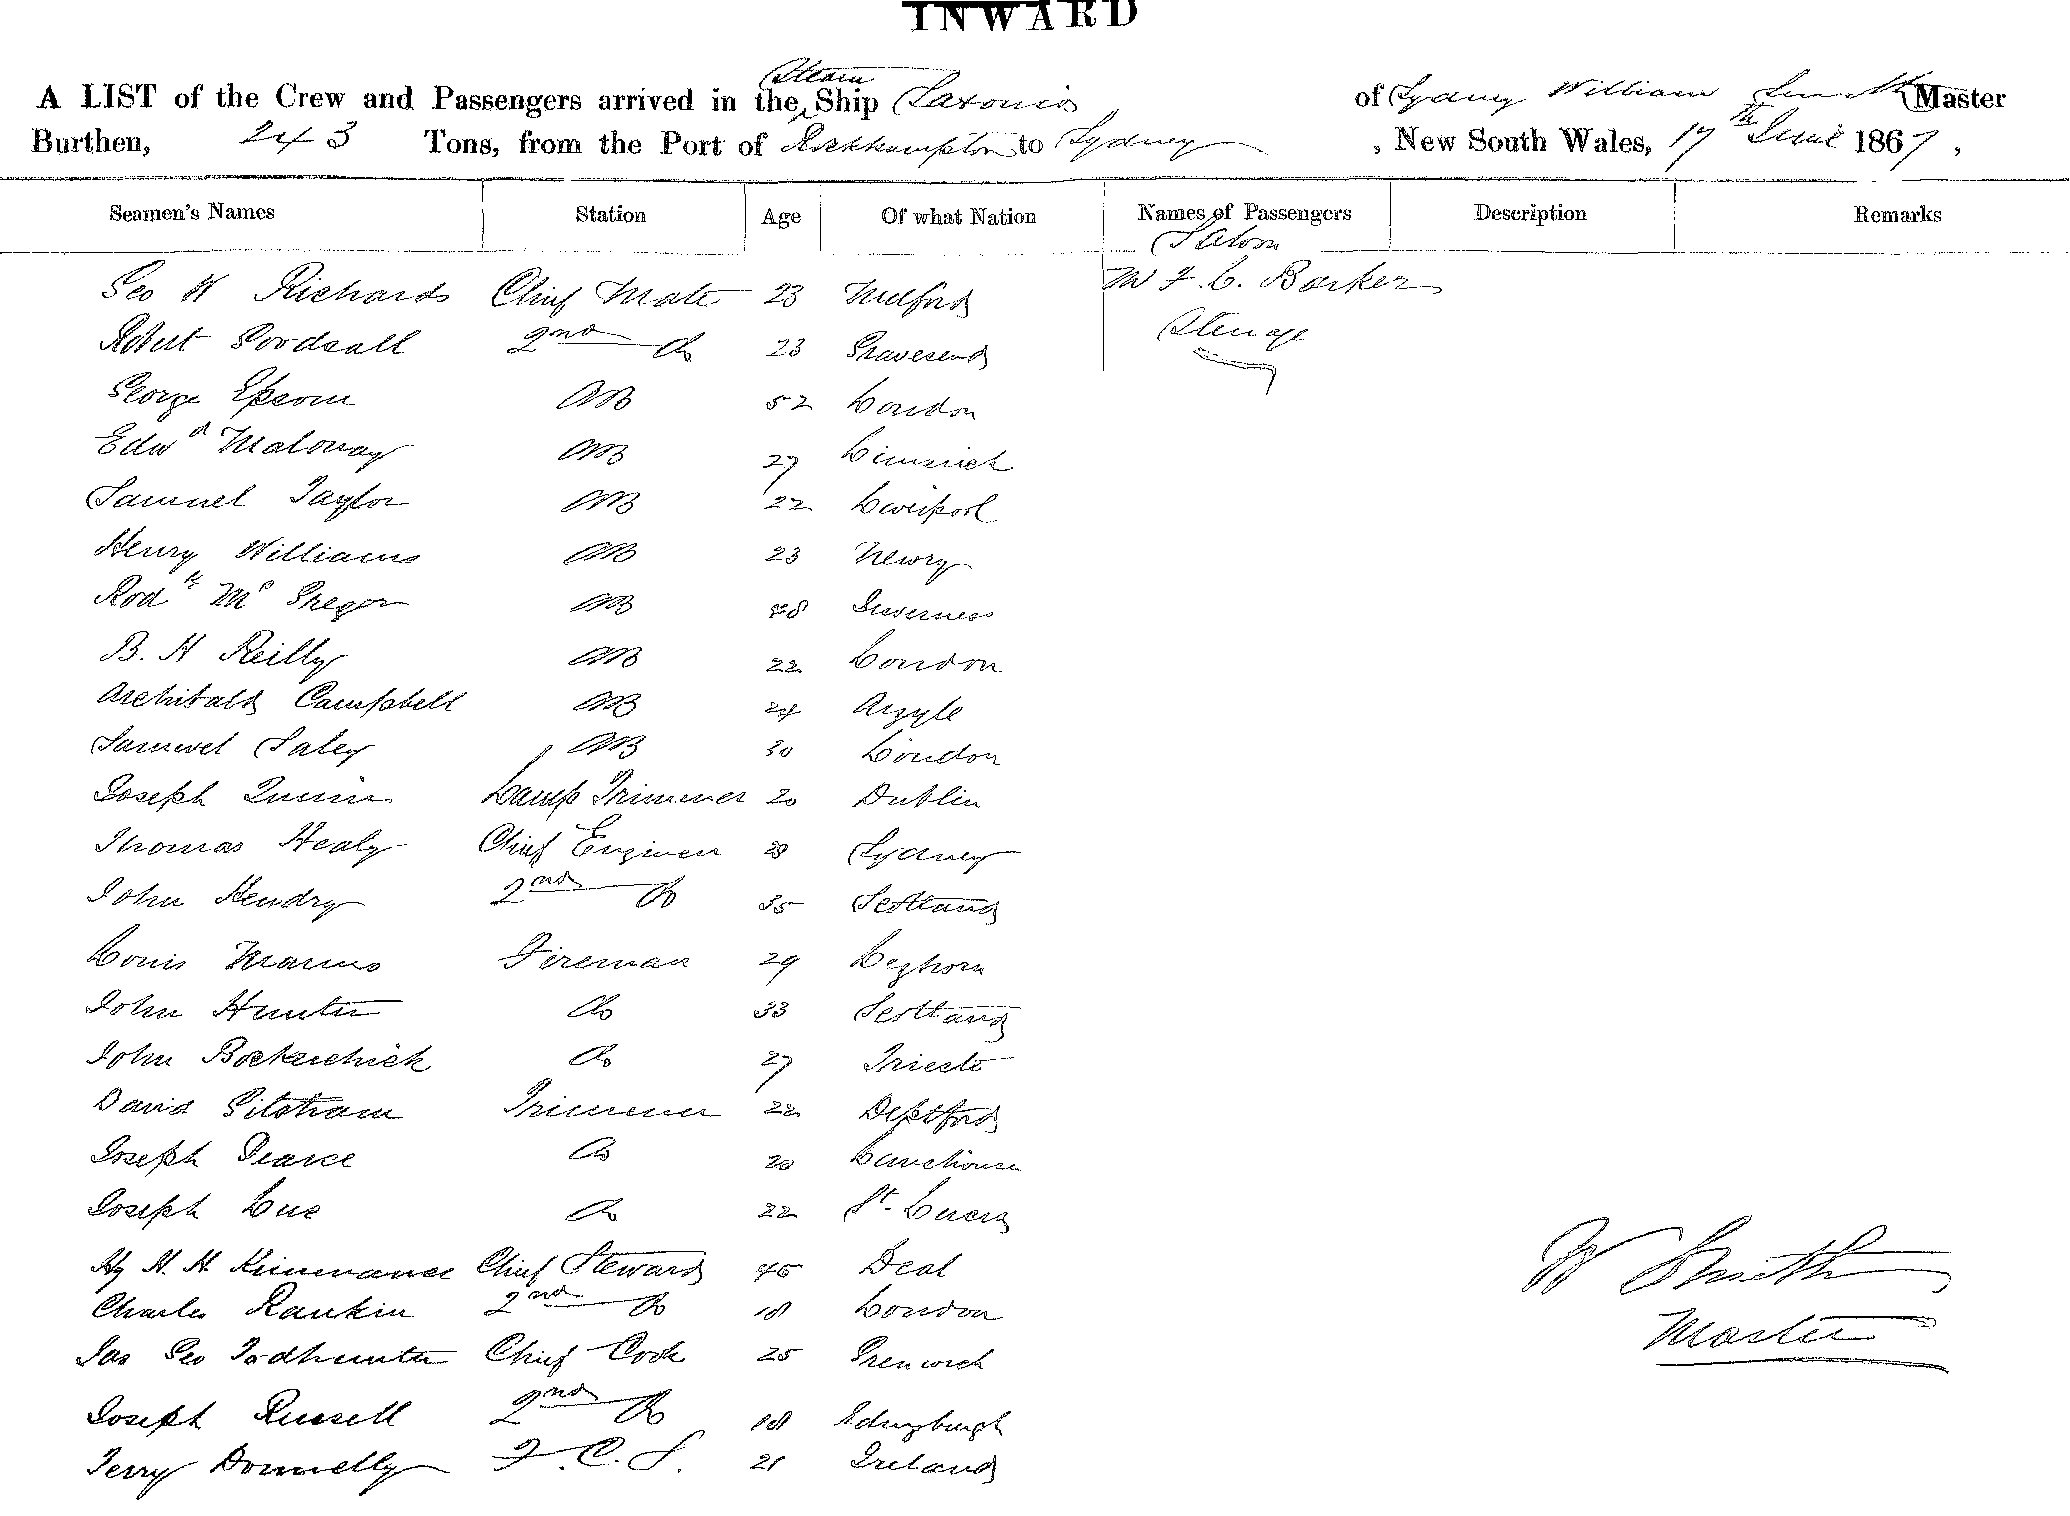 INWARD
A LIST of the Crew and Passengers arrived in the Steam Ship Saxonia of Sydney William Smith Master
Burthen, 243 Tons, from the Port of Rockhampton to Sydney , New South Wales, 17th June 1867 ,
Seamen's Names Station Age Of what Nation Names of Passengers Description Remarks
Saloon
Geo W Richards Chief Mate 23 Milford Mr F. C. Barker
Robert Goodsall 2nd Do 23 Gravesend Steerage
George Epsom AB 52 London
Edwd Maloway AB 27 Limerick
Samuel Taylor AB 22 Liverpool
Henry Williams AB 23 Newry
Rodk Mc Gregor AB 48 Inverness
B. H Reilly AB 22 London
Archibald Campbell AB 24 Argyle
Samuel Saley AB 30 London
Joseph Quinn Lamp Trimmer 20 Dublin
Thomas Healy Chief Engineer Sydney
John Hendry 2nd Do 35 Scotland
Louis Fireman 29 Leghorn
John Hunter Do 33 Scotland
John Do 27 Trieste
David Trimmer 22 Deptford
Joseph Pearce Do 20 Limehouse
Joseph Luc Do 22 St. Lucia
Hy H. H. Kinnvance Chief Steward 45 Deal
Charles Rankin 2nd Do 18 London
Jas Geo Todhunter Chief Cook 25 Grenwich
Joseph Russell 2nd Do 18 Edingburgh
Terry Donnelly F. C. S. 21 Ireland
W Smith
Master